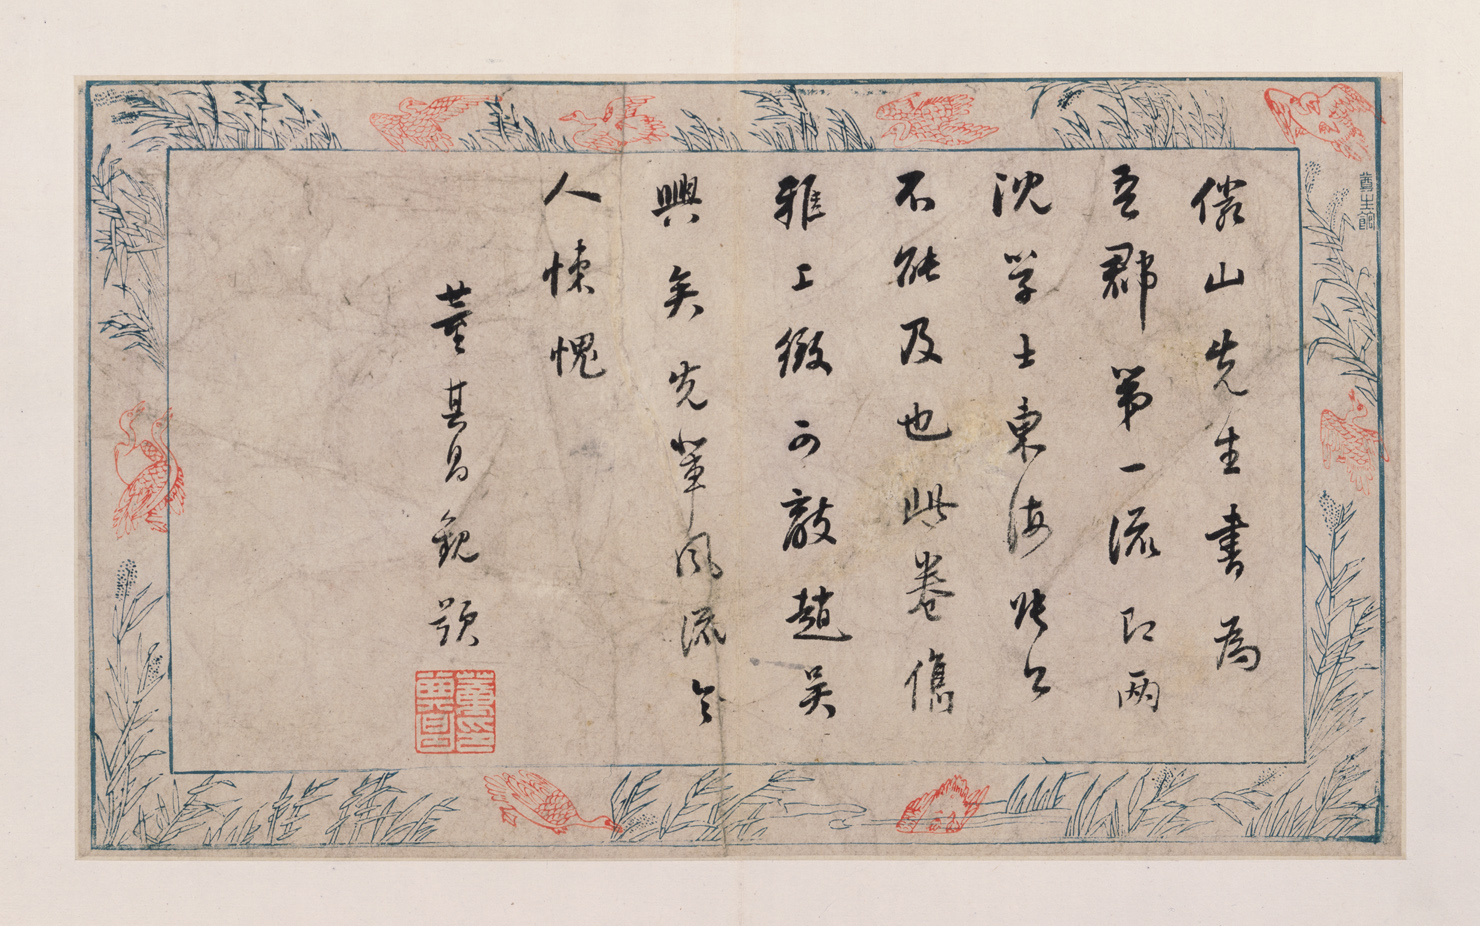 儼山先生書為
吾郡第一流即兩
沈學士東海張公
不能及也此卷雋
雅工緻可敵趙吳
興矣先輩風流令
人悚愧
董其昌觀題